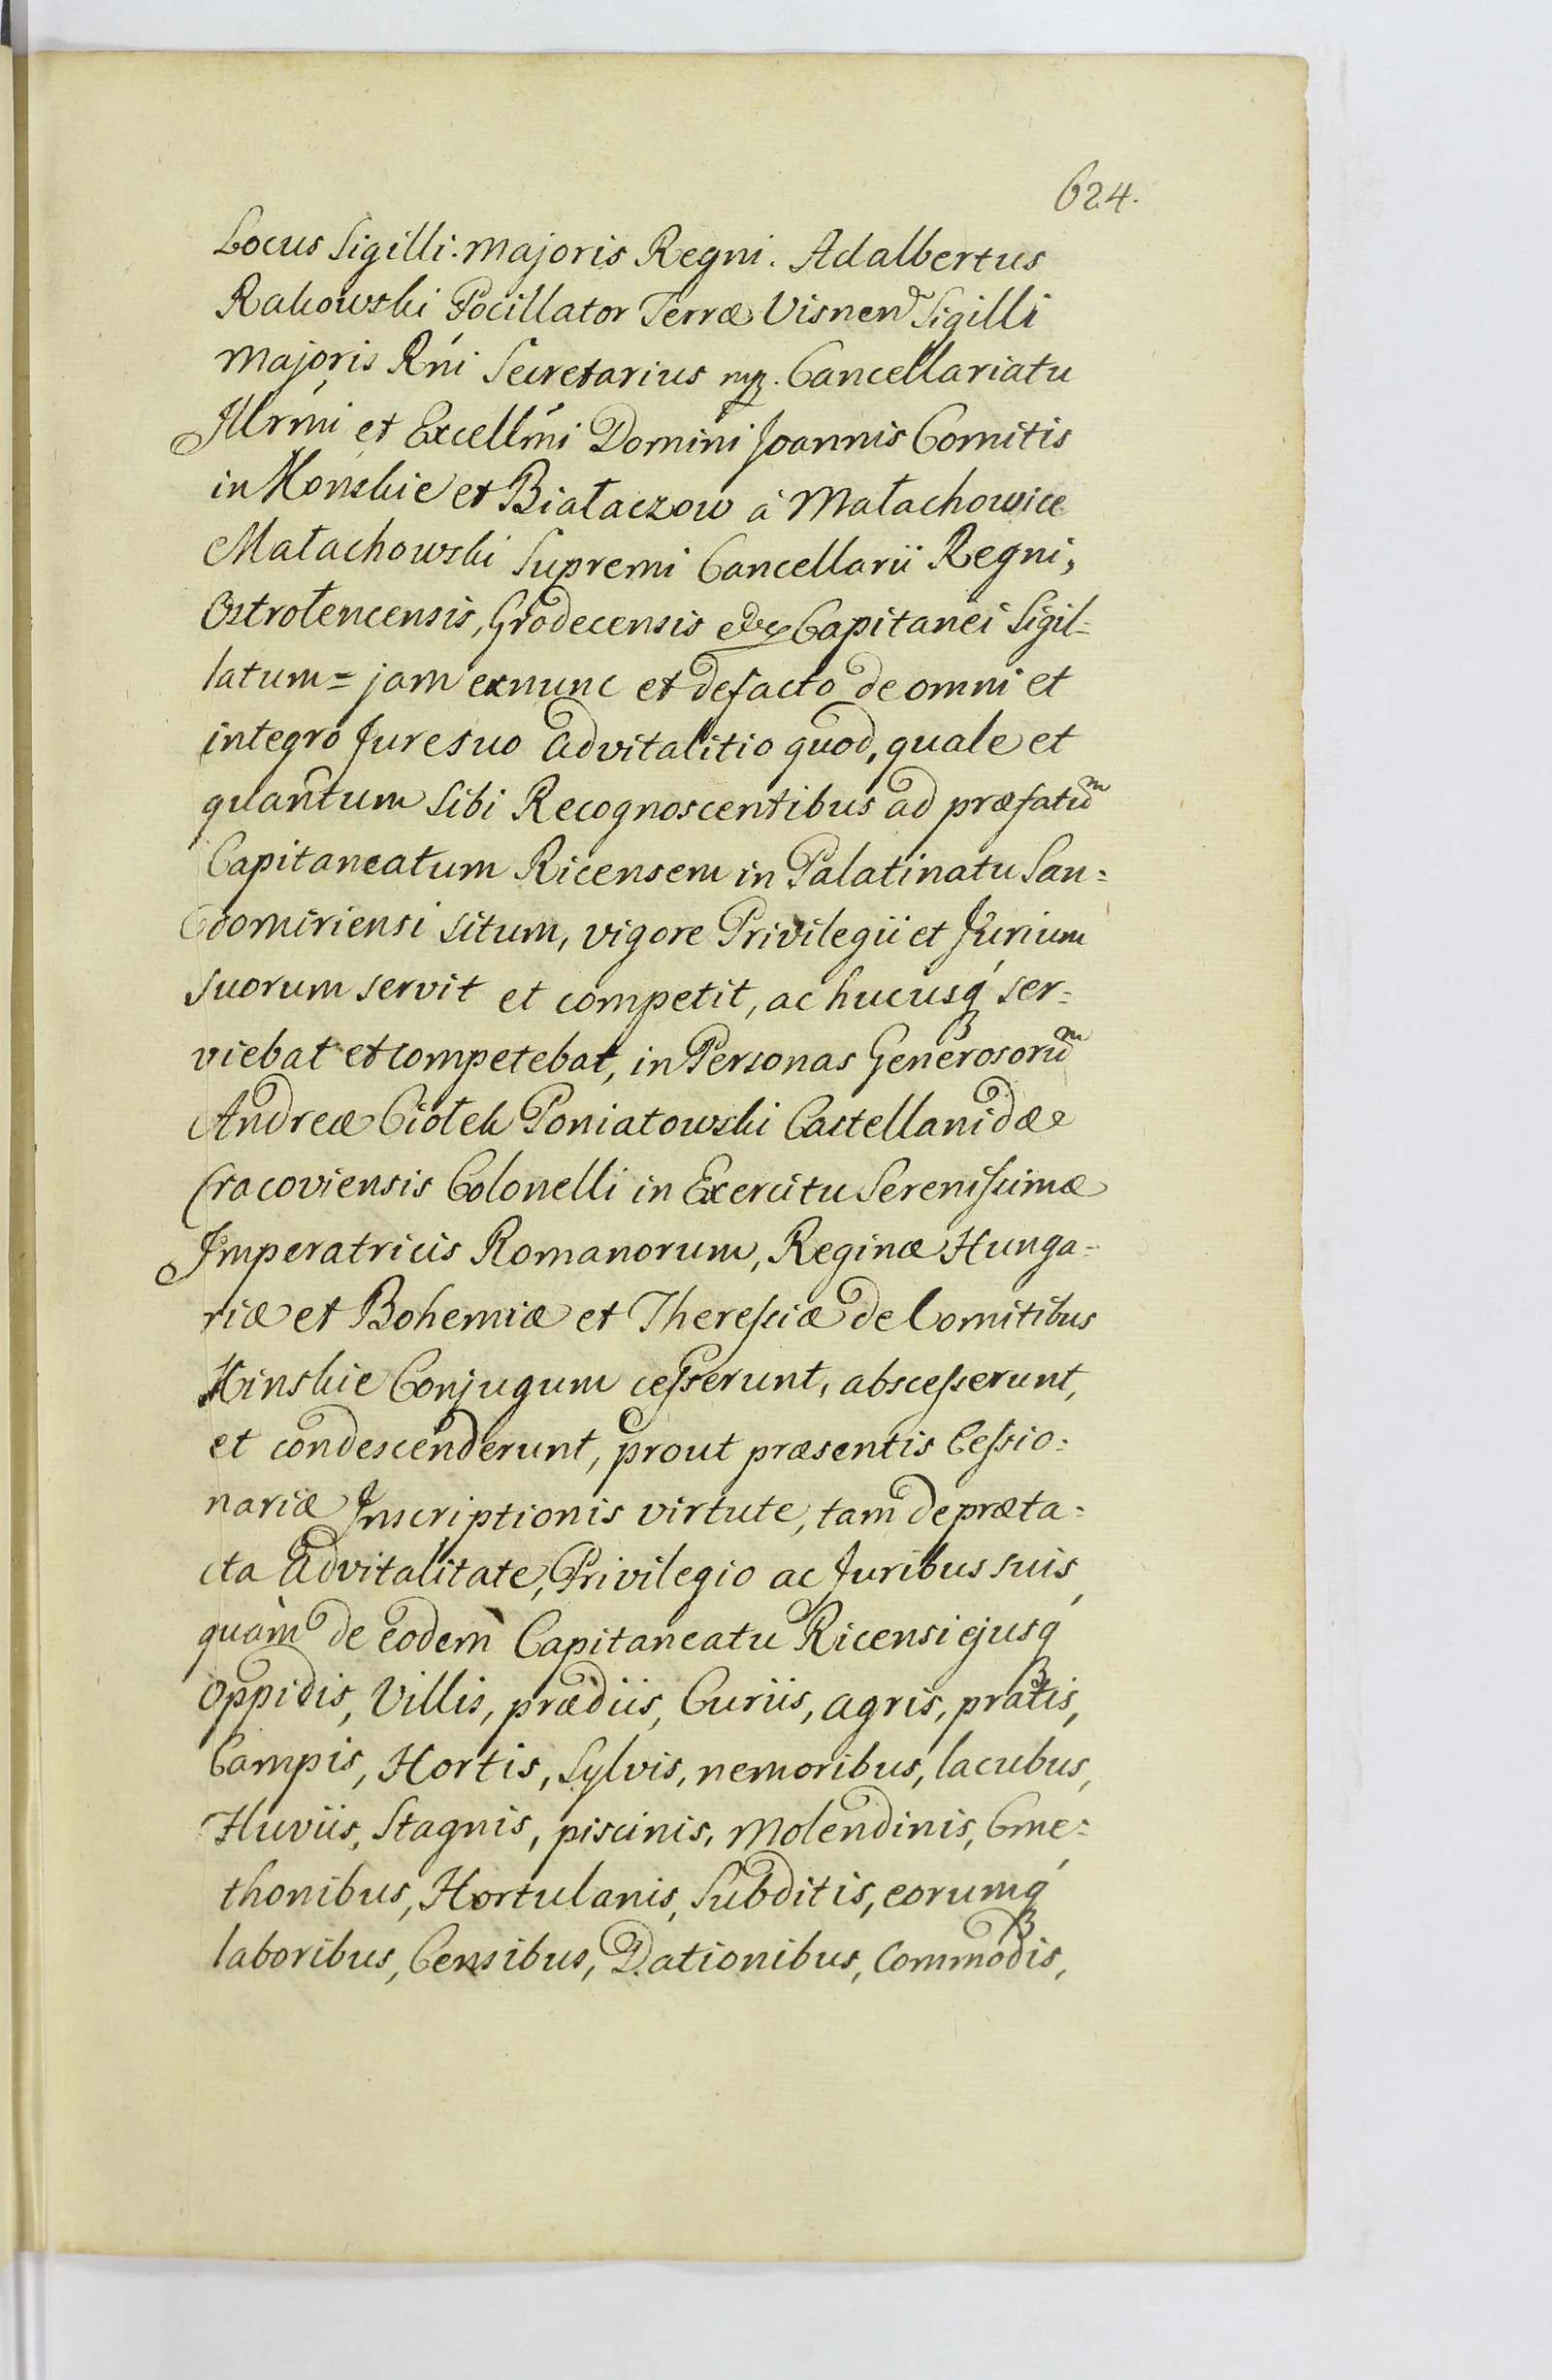 624.
Locus Sigilli. Majoris Regni. Adalbertus
Rakowski Pocillator Terræ Visnen Sigilli
Majoris Rńi Secretarius mp. Cancellariatu
Illrmi et Excellm̃i Domini Joannis Comitis
in Konskie et Białaczow à Małachowice
Małachowski Supremi Cancellarii Regni,
Ostrołencensis, Grodecensis etc Capitanei Sigil=
latum = jam exnunc et defacto de omni et
integro Jure suo Advitalitio quod, quale et
quantum Sibi Recognoscentibus ad præfatũm
Capitaneatum Ricensem in Palatinatu San=
domiriensi situm, vigore Privilegii et Jurium
suorum servit et competit, ac hucusq́ ser=
viebat et competebat, in Personas Generosorũm
Andreæ Ciołek Poniatowski Castellanidæ
Cracoviensis Colonelli in Exercitu Serenissimæ
Imperatricis Romanorum, Reginæ Hunga=
riæ et Bohemiæ et Theressiæ de Comitibus
Kinskie Conjugum cesserunt, abscesserunt,
et condescenderunt, prout præsentis Cessio=
nariæ Inscriptionis virtute, tam de præta=
cta Advitalitate, Privilegio ac Juribus suis,
quàm de eodem Capitaneatu Ricensi ejusq́
Oppidis, Villis, prædiis, Curiis, agris, pratis,
Campis, Hortis, Sylvis, nemoribus, lacubus,
Fluviis, Stagnis, piscinis, Molendinis, Cme=
thonibus, Hortulanis, Subditis, eorumq́
laboribus, Censibus, Dationibus, Commodis,